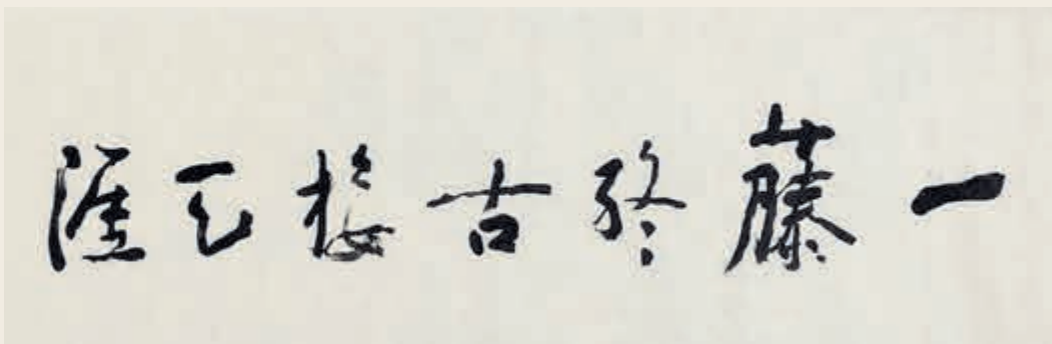 一藤終古接天涯